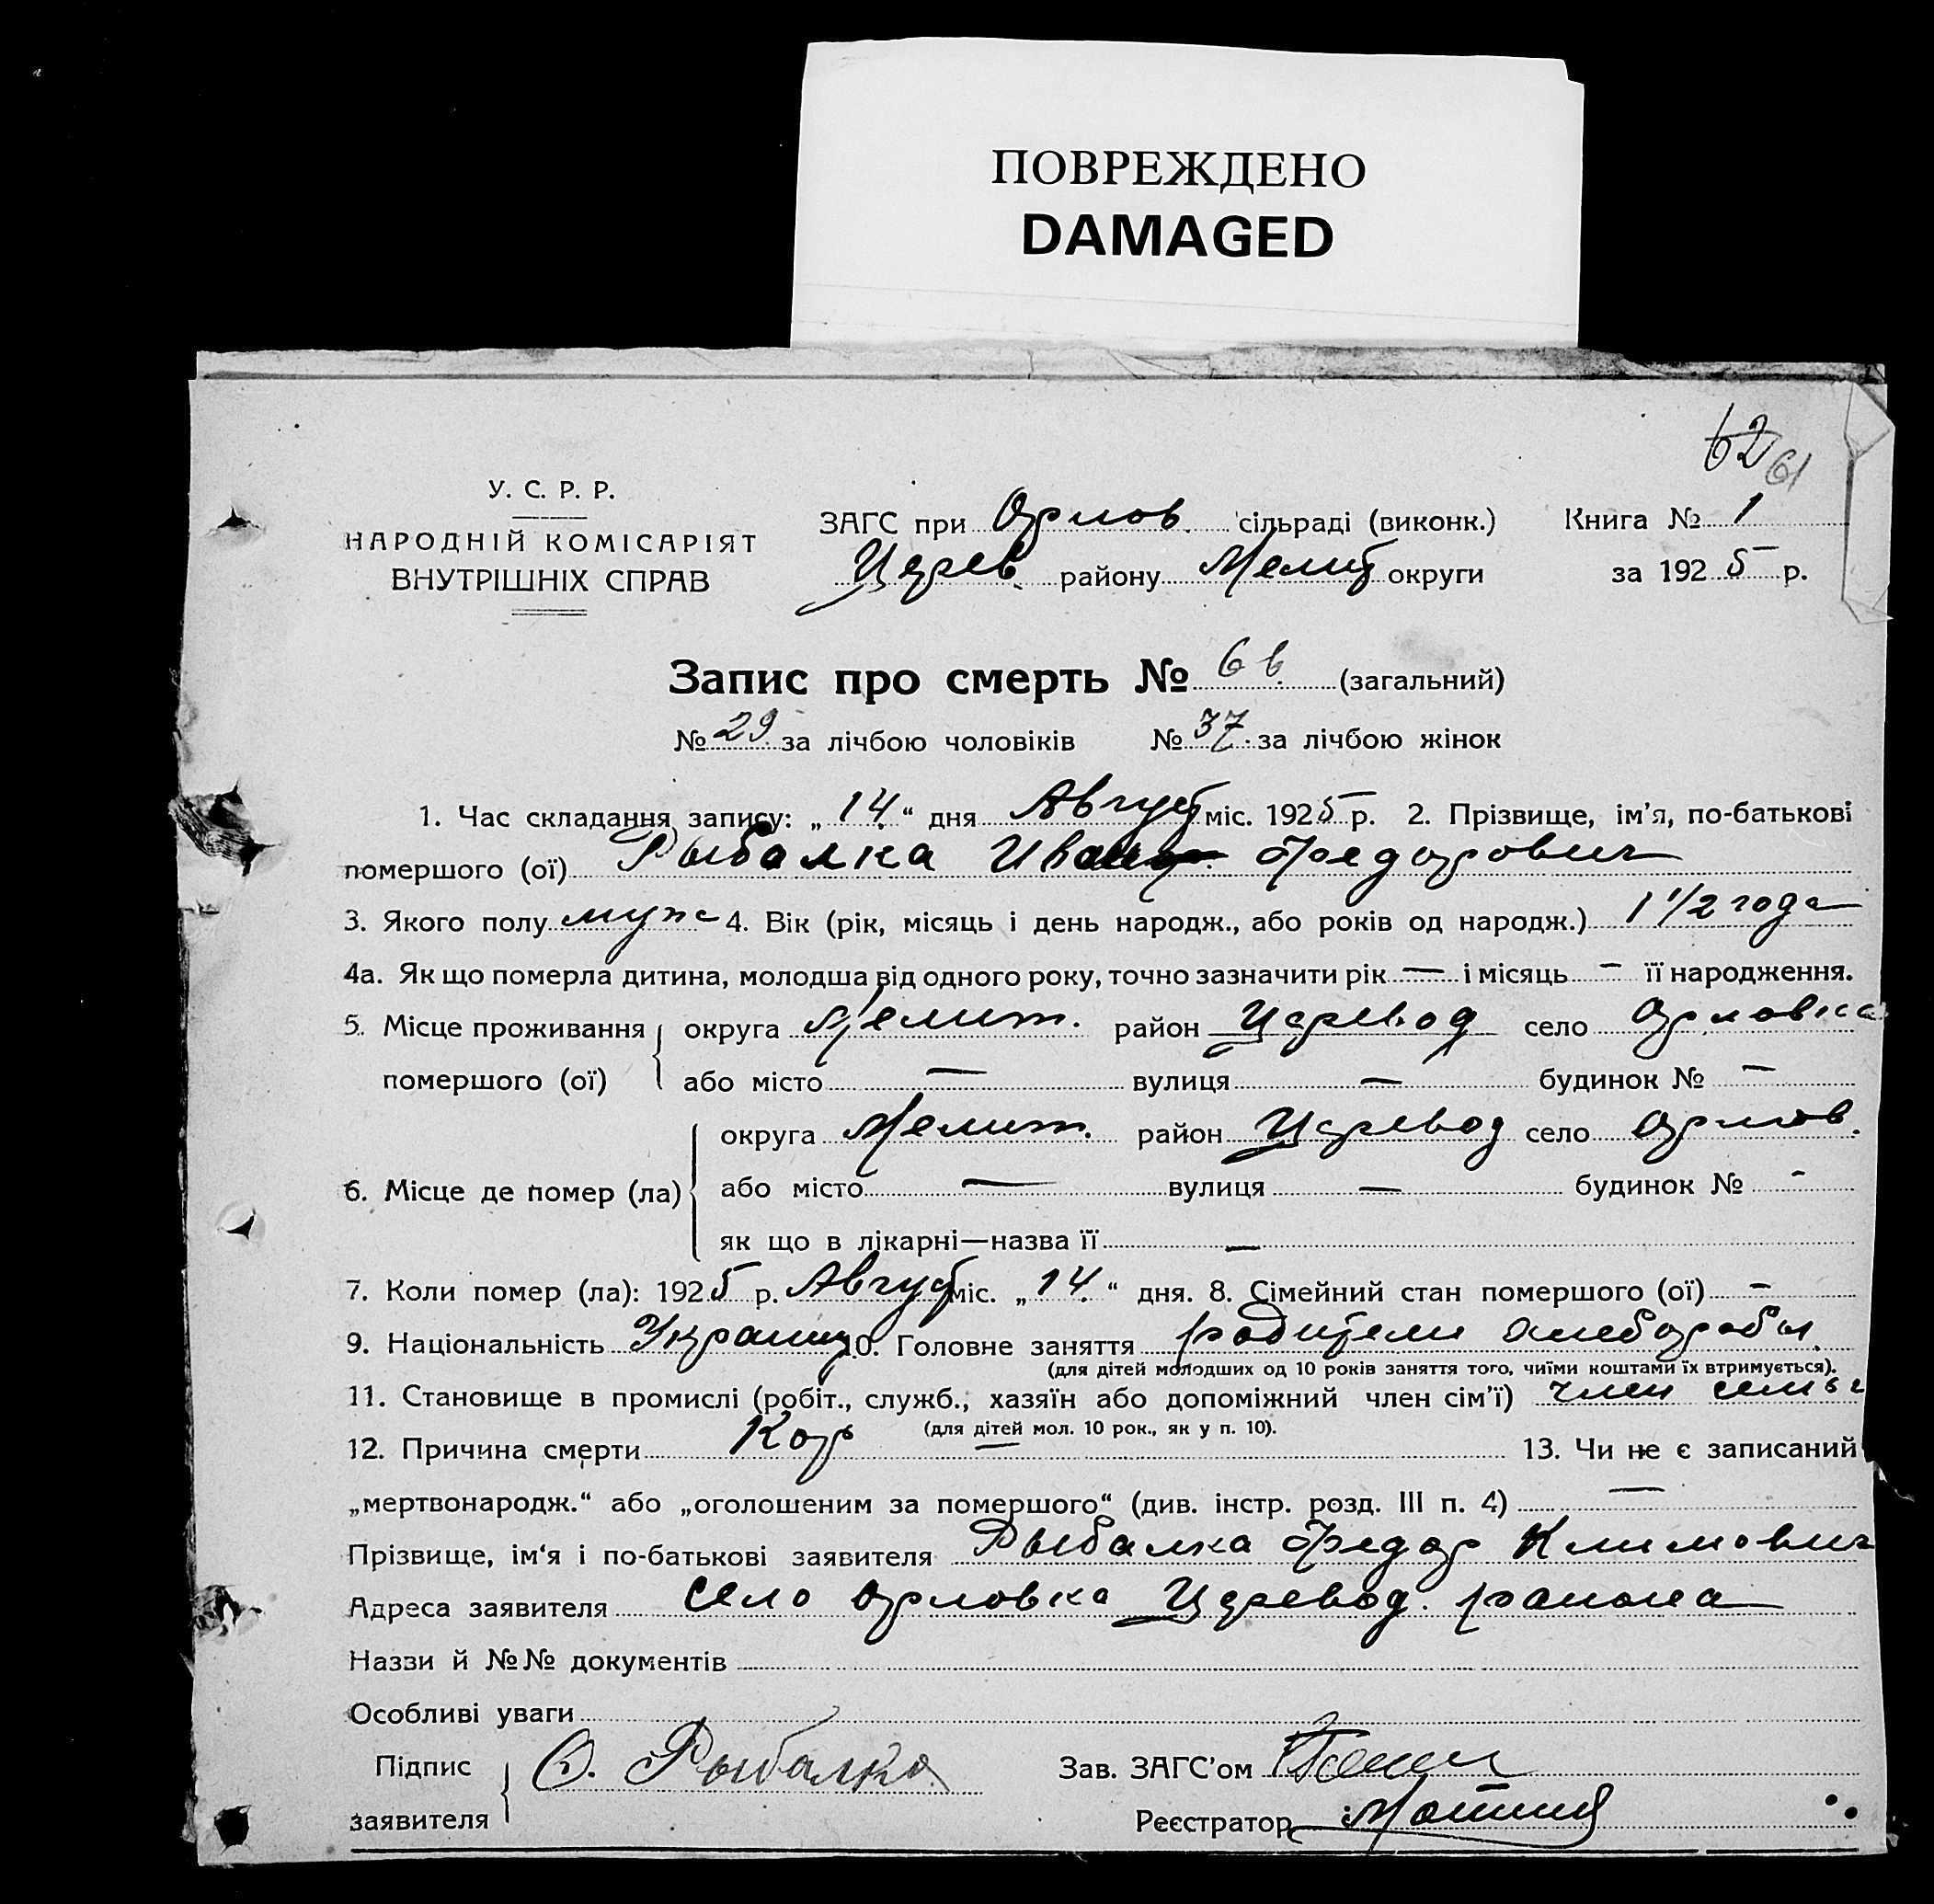 ПОВРЕЖДЕНО
DAMAGED
62 61
У. С. Р. Р.
НАРОДНІЙ КОМІСАРІЯТ
ВНУТРІШНІХ СПРАВ
ЗАГС при Орлов. сільраді (виконк.)
Царев. району Мелит округи
Книга № 1
за 1925 р.
Запис про смерть № 66 (загальний)
№ 29 за лічбою чоловіків № 37 за лічбою жінок
1. Час складання запису: „14“ дня Август міс. 1925 р. 2. Прізвище, ім’я, по-батькові
помершого (ої) Рыбалка Иван Федорович
3. Якого полу муж 4. Вік (рік, місяць і день народж., або років од народж.) 1 1/2 года
4а. Як що померла дитина, молодша від одного року, точно зазначити рік — і місяць — її народження.
5. Місце проживання помершого (ої) округа Мелит. район Царевод село Орловка
або місто — вулиця — будинок № —
6. Місце де помер (ла) округа Мелит. район Царевод село Орлов.
або місто — вулиця — будинок № -
як що в лікарні—назва її —
7. Коли помер (ла): 1925 р. Август міс. „14“ дня. 8. Сімейний стан помершого (ої) —
9. Національність Украин 10. Головне заняття родители хлеборобы
(для дітей молодших од 10 років заняття того, чиїми коштами їх втримується).
11. Становище в промислі (робіт., служб., хазяїн або допоміжний член сім’ї) член семьи
(для дітей мол. 10 рок., як у п. 10).
12. Причина смерти Корь — 13. Чи не є записаний
„мертвонародж.“ або „оголошеним за помершого“ (див. інстр. розд. III п. 4) —
Прізвище, ім‘я і по-батькові заявителя Рыбалка Федор Климович
Адреса заявителя село Орловка Царевод. района
Наззи й №№ документів
Особливі уваги
Підпис заявителя Ф. Рыбалка
Зав. ЗАГС’ом
Реєстратор